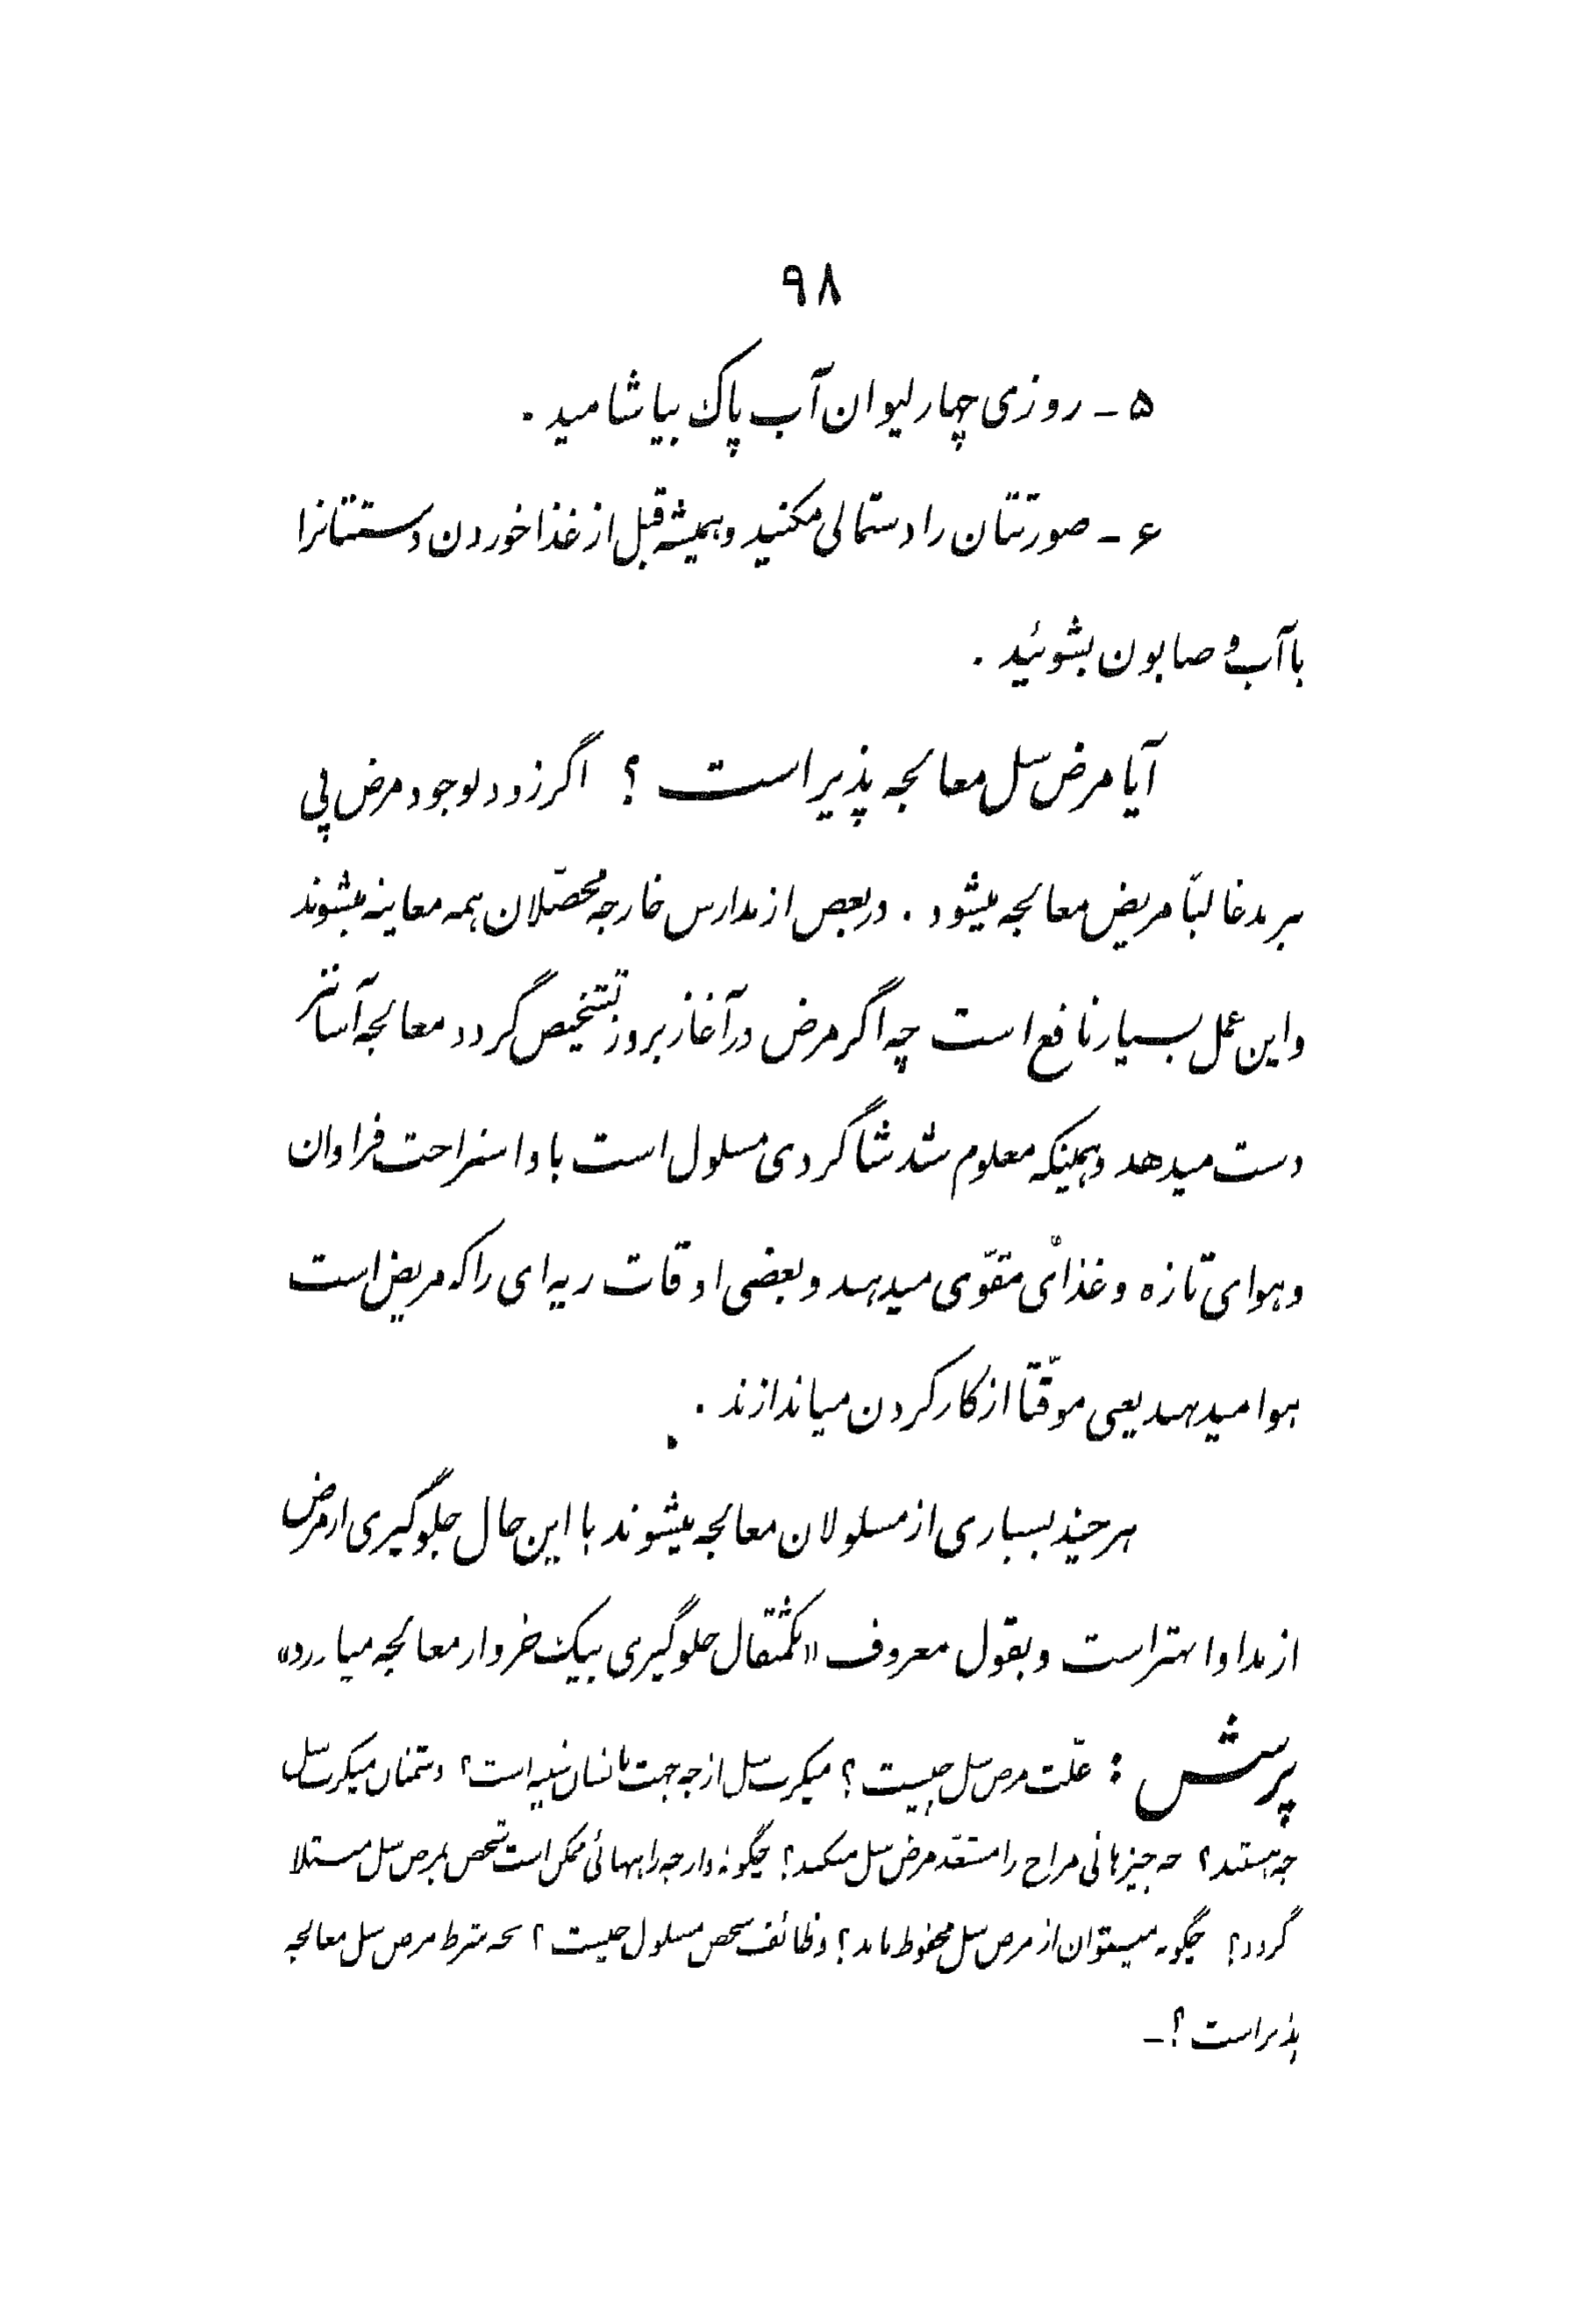 ۹۸
۵ - روزی چهار لیوان آب پاک بیاشامید .
۶ - صورتتان را دستمالی مکنید و همیشه قبل از غذا خوردن دستتانرا
با آب و صابون بشوئید .
آیا مرض سل معالجه پذیر است ؟ اگر زود بوجود مرض پی
برید غالباً مریض معالجه میشود . در بعض از مدارس خارجه محصّلان همه معاینه میشوند
و این عمل بسیار نافع است چه اگر مرض در آغاز بروز تشخیص گردد معالجه آسانتر
دست میدهد و همینکه معلوم شد شاگردی مسلول است باو استراحت فراوان
و هوای تازه و غذای مقوّی میدهند و بعضی اوقات ریه ای را که مریض است
هوا میدهند یعنی موقّتاً از کار کردن میاندازند .
هر چند بسیاری از مسلولان معالجه میشوند با این حال جلوگیری از مرض
از مداوا بهتر است و بقول معروف «یکمثقال جلوگیری بیک خروار معالجه میارزد»
پرسش : علّت مرض سل چیست ؟ میکرب سل از چه جهت بانسان شبیه است ؟ دشمنان میکرب سل
چه هستند ؟ چه چیزهائی مزاج را مستعدّ مرض سل میکند ؟ چگونه و از چه راههائی ممکن است شخص بمرض سل مبتلا
گردد ؟ چگونه میتوان از مرض سل محفوظ ماند ؟ وظائف شخص مسلول چیست ؟ بچه شرط مرض سل معالجه
پذیر است ؟ -